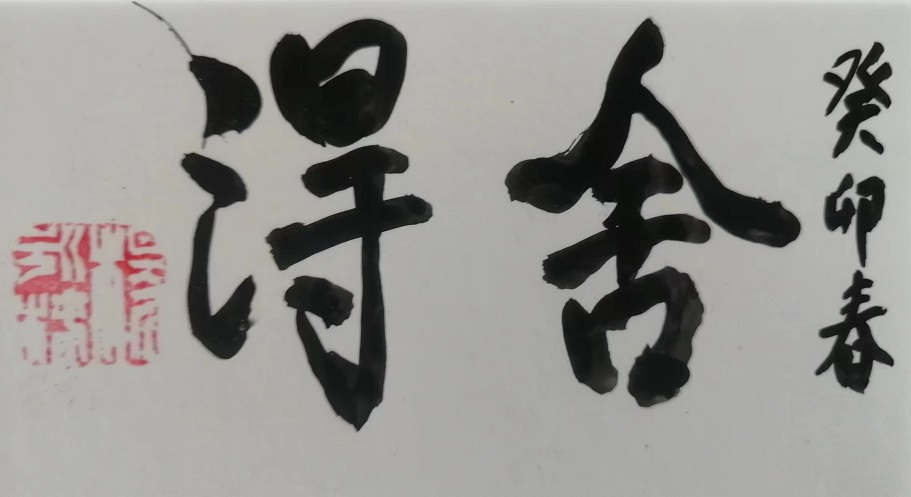 癸卯春
舍得